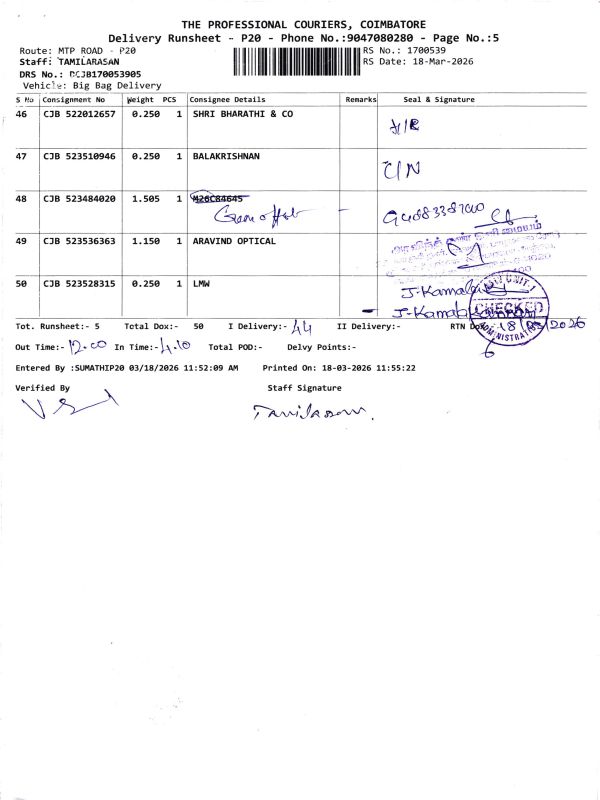 THE PROFESSIONAL COURIERS, COIMBATORE
Delivery Runsheet - P20 - Phone No.:9047080280 - Page No.:5
Route: MTP ROAD - P20
RS No.: 1700539
Staff: TAMILARASAN
RS Date: 18-Mar-2026
DRS No.: DCJB170053905
Vehicle: Big Bag Delivery
S No Consignment No Weight PCS Consignee Details Remarks Seal & Signature
46 CJB 522012657 0.250 1 SHRI BHARATHI & CO
47 CJB 523510946 0.250 1 BALAKRISHNAN
48 CJB 523484020 1.505 1 M26C84645
49 CJB 523536363 1.150 1 ARAVIND OPTICAL
50 CJB 523528315 0.250 1 LMW
CHECKED
Tot. Runsheet:- 5 Total Dox:- 50 I Delivery:- 44 II Delivery:- RTN Dox:- 6
18/03/2026
Out Time:- 12.00 In Time:- 4.10 Total POD:- Delvy Points:-
Entered By :SUMATHIP20 03/18/2026 11:52:09 AM Printed On: 18-03-2026 11:55:22
Verified By Staff Signature
Tamilarasan.